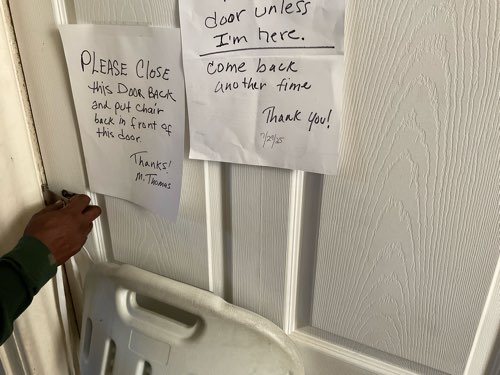 PLEASE CLOSE
this DOOR BACK
and put chair
back in front of
this door.
Thanks!
M. Thomas
door unless
I'm here.
come back
another time
Thank you!